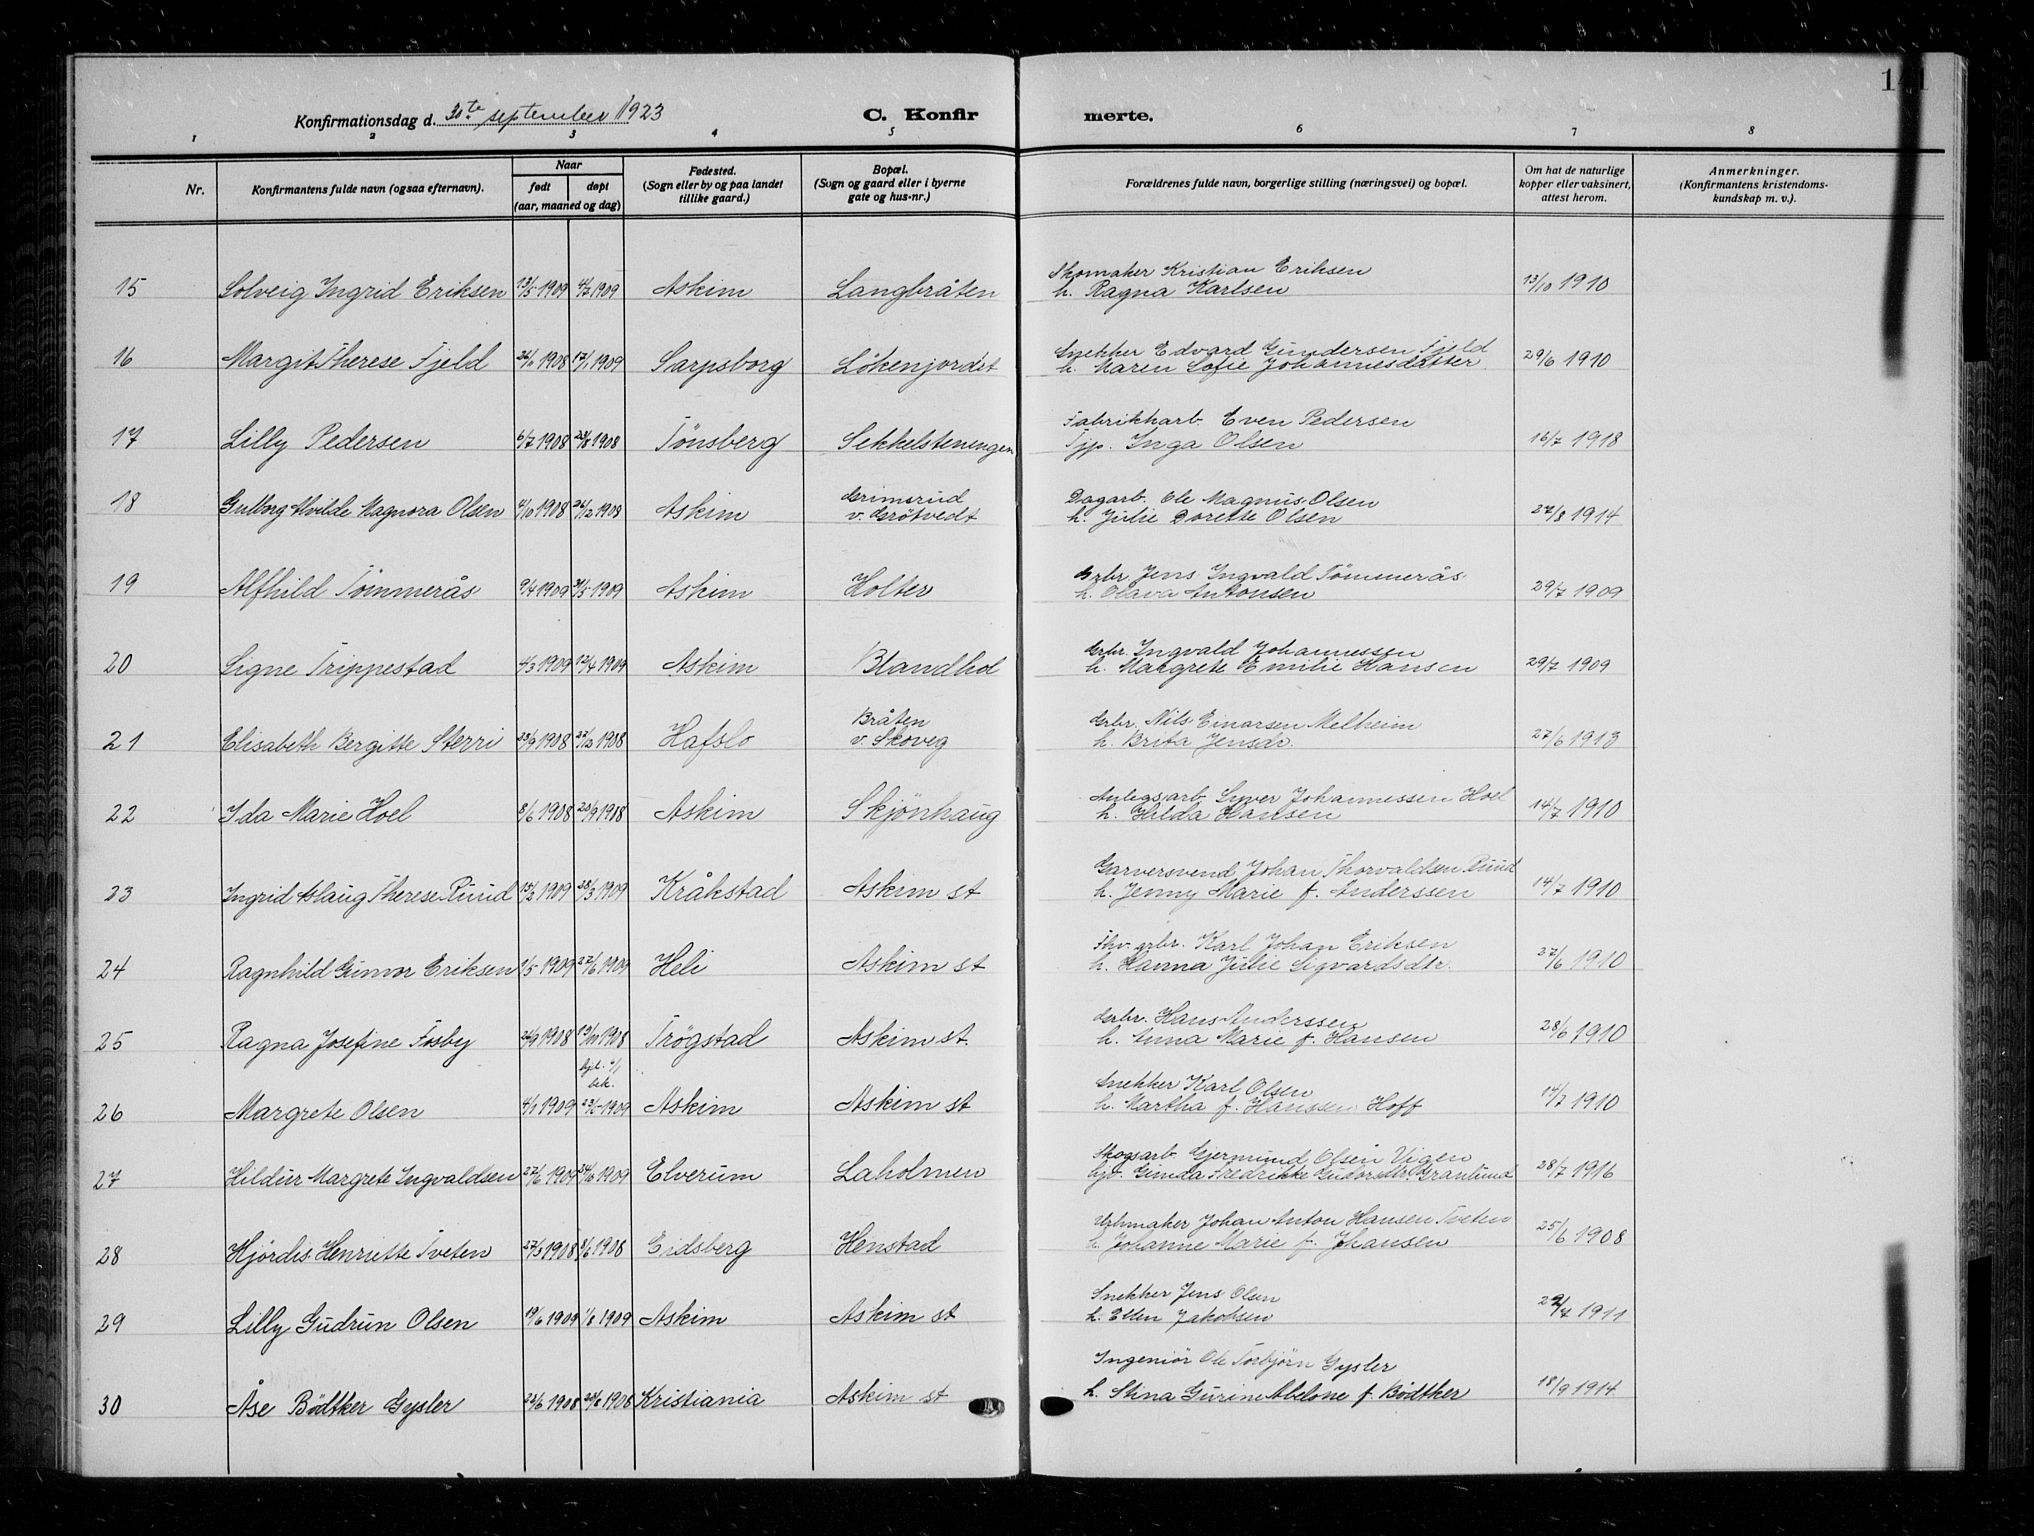 Konfirmationsdag d. 30te september 1923 C. Konfirmerte.
1 2 3 4 5 6 7 8
Nr. Konfirmantens fulde navn (ogsaa efternavn). Naar født døpt (aar, maaned og dag) Fødested. (Sogn eller by og paa landet tillike gaard.) Bopæl. (Sogn og gaard eller i byerne gate og hus-nr.) Forældrenes fulde navn, borgerlige stilling (næringsvei) og bopæl. Om hat de naturlige kopper eller vaksinert, attest herom. Anmerkninger. (Konfirmantens kristendomskundskap m. v.).
15 Solveig Ingrid Eriksen 13/5 1909 4/7 1909 Askim Langbråten Skomaker Kristian Eriksen
h. Ragna Karlsen 13/10 1910
16 Margit Therese Fjeld 1908 17/1 1909 Sarpsborg Lökenjordet Snekker Edvard Gundersen Fjeld
h. Maren Sofie Johannesdatter 29/6 1910
17 Lilly Pedersen 6/7 1908 1908 Tönsberg Sekkelsteningen Fabrikkarb. Even Pedersen
Tjp. Inga Olsen 16/7 1918
18 Gulborg Alvilde Magnora Olsen 1908 26/12 1908 Askim Grimsrud
v. Grötvedt Dagarb. Ole Magnus Olsen
h. Julie Dorette Olsen 27/8 1914
19 Alfhild Tömmerås 9/4 1909 31/5 1909 Askim Holter Grbr Jens Ingvald Tömmerås
h. Olava Antonsen 29/7 1909
20 Signe Trippestad 4/3 1909 12/4 1909 Askim Blandhol Grbr. Ingvald Johannessen
h. Margrete Emilie Hansen 29/7 1909
21 Elisabeth Bergitte Sterri 23/9 1908 27/12 1908 Hafslo Bråten
v. Skoveg Grbr. Nils Einarsen Melheim
h. Brita Jensdr. 27/6 1913
22 Ida Marie Hoel 8/6 1908 20/9 1908 Askim Skjönhaug Anlegsarb Syver Johannessen Hoel
h. Hilda Hansen 14/7 1910
23 Ingrid Aslaug Therese Ruud 13/2 1909 28/3 1909 Kråkstad Askim st Garversvend Johan Thorvaldsen Ruud
h. Jenny Marie f. Anderssen 14/7 1910
24 Ragnhild Gunvor Eriksen 1/5 1909 27/6 1909 Heli Askim st Fhv. grbr. Karl Johan Eriksen
h. Hanna Julie Sigvardsdtr. 27/6 1910
25 Ragna Josefine Fosby 24/9 1908 1908 Trögstad Askim st. Grbr. Hans Anderssen
h. Anna Marie f. Hansen 28/6 1910
26 Margrete Olsen 4/1 1909 bek. 1909 Askim Askim st Snekker Karl Olsen
h. Martha f. Hanssen Hoff 14/7 1910
27 Hildur Margrete Ingvaldsen 27/6 1909 1909 Elverum Laholmen Skogsarb. Gjermund Olsen Vigen
Gunda Fredrikke Granlund 28/7 1916
28 Hjördis Henriette Tveten 27/3 1908 8/6 1908 Eidsberg Henstad Urhmaker Johan Anton Hansen Tveten
h. Johanne Marie f. Johansen 25/6 1908
29 Lilly Gudrun Olsen 19/6 1909 1/8 1909 Askim Askim st Snekker Jens Olsen
h. Ellen Jakobsen 1911
30 Åse Bödtker Gysler 23/6 1908 1908 Kristiania Askim st Ingeniör Ole Torbjörn Gysler
h. Stina Gurine Abelone f. Bödtker 18/9 1914